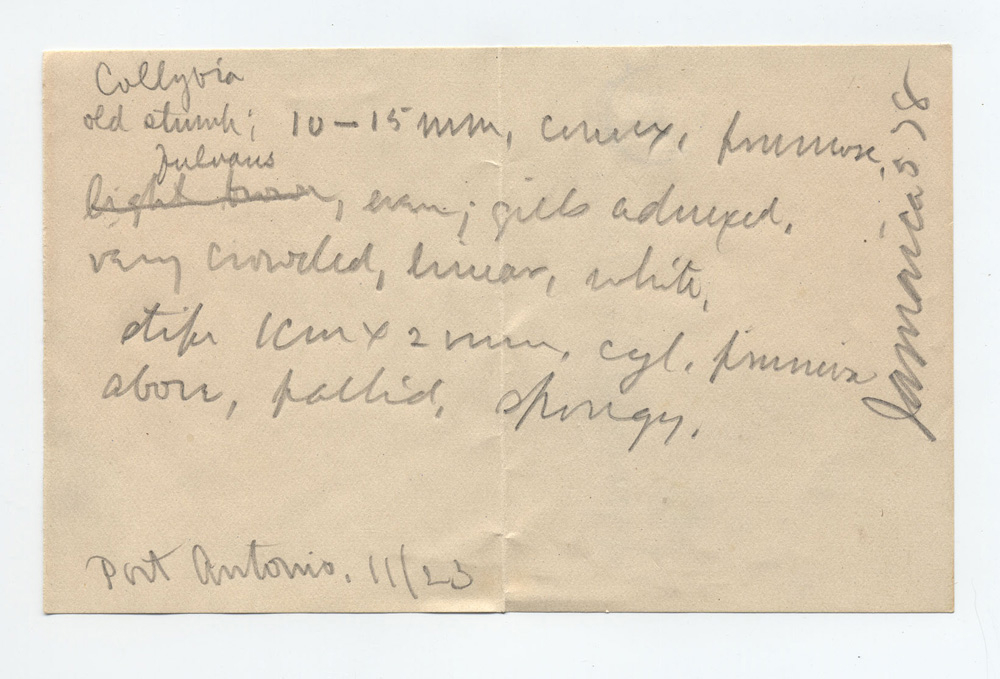 Collybia
old stump; 10–15 mm, convex, pruinose,
fulvous
light brown, even; gills adnexed,
very crowded, linear, white,
stipe 1cm x 2 mm, cyl. pruinose
above, pallid, spongy.
Port Antonio. 11/23
Jamaica 578